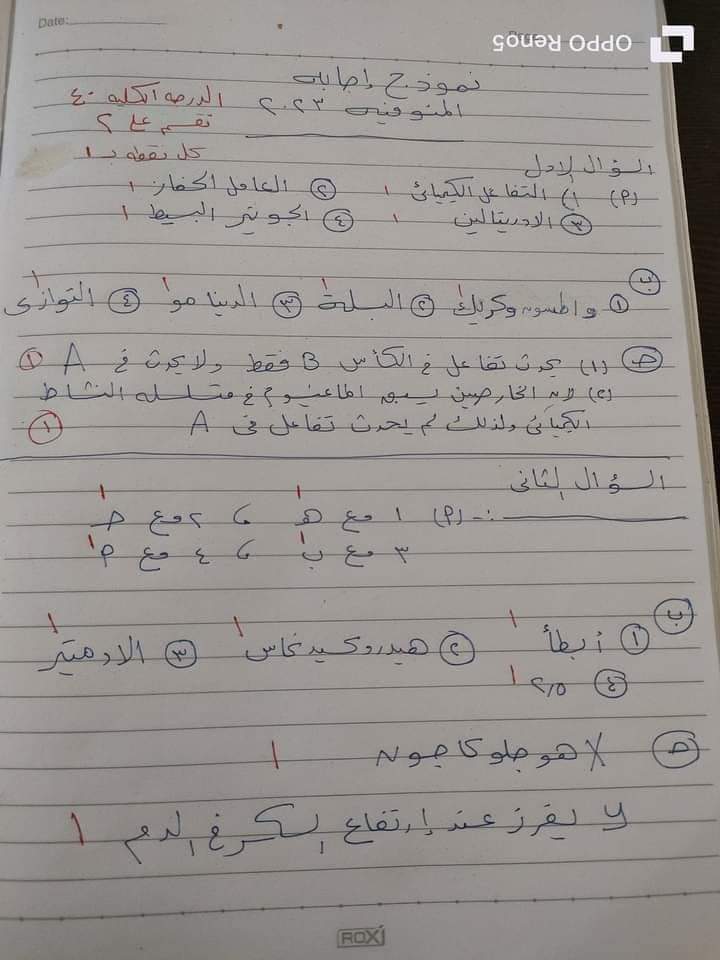 Date:
OPPO Reno5
نموذج إجابة
المنوفية ٢٠٢٣
الدرجة الكلية ٤٠
تقسم على ٢
كل نقطة بـ ١
السؤال الاول
(٩) ١) التفاعل الكيميائى ١ ٢ العامل الحفاز ١
٣ الادرينالين ١ ٤ الجوتير البسيط ١
ب
١ واطسون وكريك ١ ٢ البسلة ١ ٣ الدينامو ١ ٤ التوازى ١
ج (١) يحدث تفاعل فى الكأس B فقط ولا يحدث فى A ١
(٢) لان الخارصين يسبق الماغنسيوم فى متسلسلة النشاط
الكيميائى ولذلك لم يحدث تفاعل فى A ١
السؤال الثانى
(٩) :- ١ مع هـ ١ ، ٢ مع جـ ١
٣ مع ب ١ ، ٤ مع ٩ ١
ب
١ أبطأ ١ ٢ هيدروكسيد نحاس ١ ٣ الاوميتر ١
٤ ٢,٥ ١
ج X هو جلوكاجون ١
Y يفرز عند إرتفاع السكر فى الدم ١
ROXI